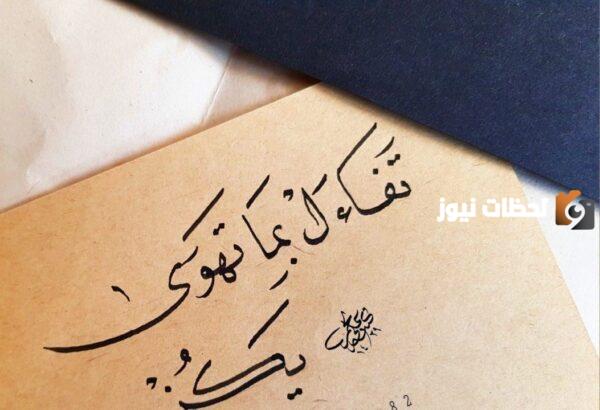 تَفَاءَلْ بِمَا تَهْوَى
يَكُنْ
لحظات نيوز
82